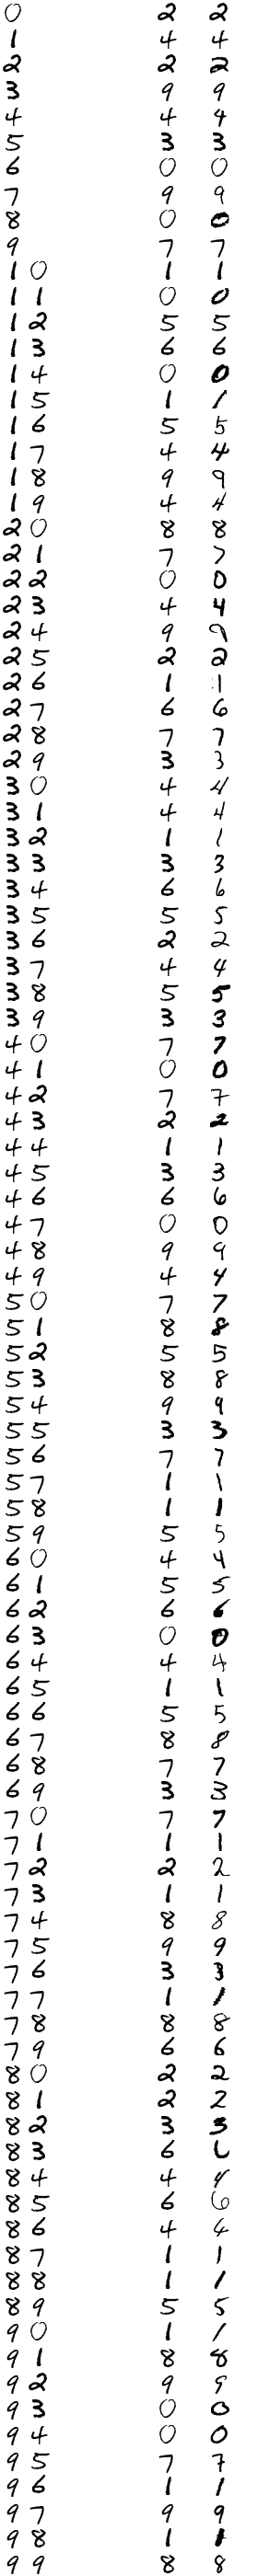 0 2 2
1 4 4
2 2 2
3 9 9
4 4 4
5 3 3
6 0 0
7 9 9
8 0 0
9 7 7
10 1 1
11 0 0
12 5 5
13 6 6
14 0 0
15 1 1
16 5 5
17 4 4
18 9 9
19 4 4
20 8 8
21 7 7
22 0 0
23 4 4
24 9 9
25 2 2
26 1 1
27 6 6
28 7 7
29 3 3
30 4 4
31 4 4
32 1 1
33 3 3
34 6 6
35 5 5
36 2 2
37 4 4
38 5 5
39 3 3
40 7 7
41 0 0
42 7 7
43 2 2
44 1 1
45 3 3
46 6 6
47 0 0
48 9 9
49 4 4
50 7 7
51 8 8
52 5 5
53 8 8
54 9 9
55 3 3
56 7 7
57 1 1
58 1 1
59 5 5
60 4 4
61 5 5
62 6 6
63 0 0
64 4 4
65 1 1
66 5 5
67 8 8
68 7 7
69 3 3
70 7 7
71 1 1
72 2 2
73 1 1
74 8 8
75 9 9
76 3 3
77 1 1
78 8 8
79 6 6
80 2 2
81 2 2
82 3 3
83 6 6
84 4 4
85 6 6
86 4 4
87 1 1
88 1 1
89 5 5
90 1 1
91 8 8
92 9 9
93 0 0
94 0 0
95 7 7
96 1 1
97 9 9
98 1 1
99 8 8